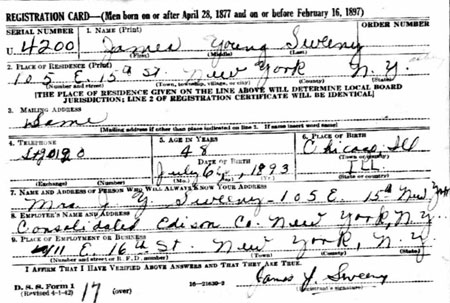 REGISTRATION CARD—(Men born on or after April 28, 1877 and on or before February 16, 1897)
SERIAL NUMBER 1. NAME (Print) ORDER NUMBER
U. 4200 James Young Sweeny
(First) (Middle) (Last)
2. PLACE OF RESIDENCE (Print)
105 E. 15th St. New York N.Y.
(Number and street) (Town, township, village, or city) (County) (State)
[THE PLACE OF RESIDENCE GIVEN ON THE LINE ABOVE WILL DETERMINE LOCAL BOARD
JURISDICTION; LINE 2 OF REGISTRATION CERTIFICATE WILL BE IDENTICAL]
3. MAILING ADDRESS
Same
(Mailing address if other than place indicated on line 2. If same insert word same)
4. TELEPHONE 5. AGE IN YEARS 6. PLACE OF BIRTH
48 Chicago, Ill
DATE OF BIRTH (Town or county)
July 6, 1893 Ill
(Exchange) (Number) (Mo.) (Day) (Yr.) (State or country)
7. NAME AND ADDRESS OF PERSON WHO WILL ALWAYS KNOW YOUR ADDRESS
Mrs. J. Y. Sweeny - 105 E. 15th New York
8. EMPLOYER'S NAME AND ADDRESS
Consolidated Edison Co. New York, N.Y.
9. PLACE OF EMPLOYMENT OR BUSINESS
E. 16th St. New York, N.Y.
(Number and street or R. F. D. number) (Town) (County) (State)
I AFFIRM THAT I HAVE VERIFIED ABOVE ANSWERS AND THAT THEY ARE TRUE.
D. S. S. Form 1
(Revised 4-1-42) 17 (over) 16—21630-2 James Y. Sweeny
(Registrant's signature)